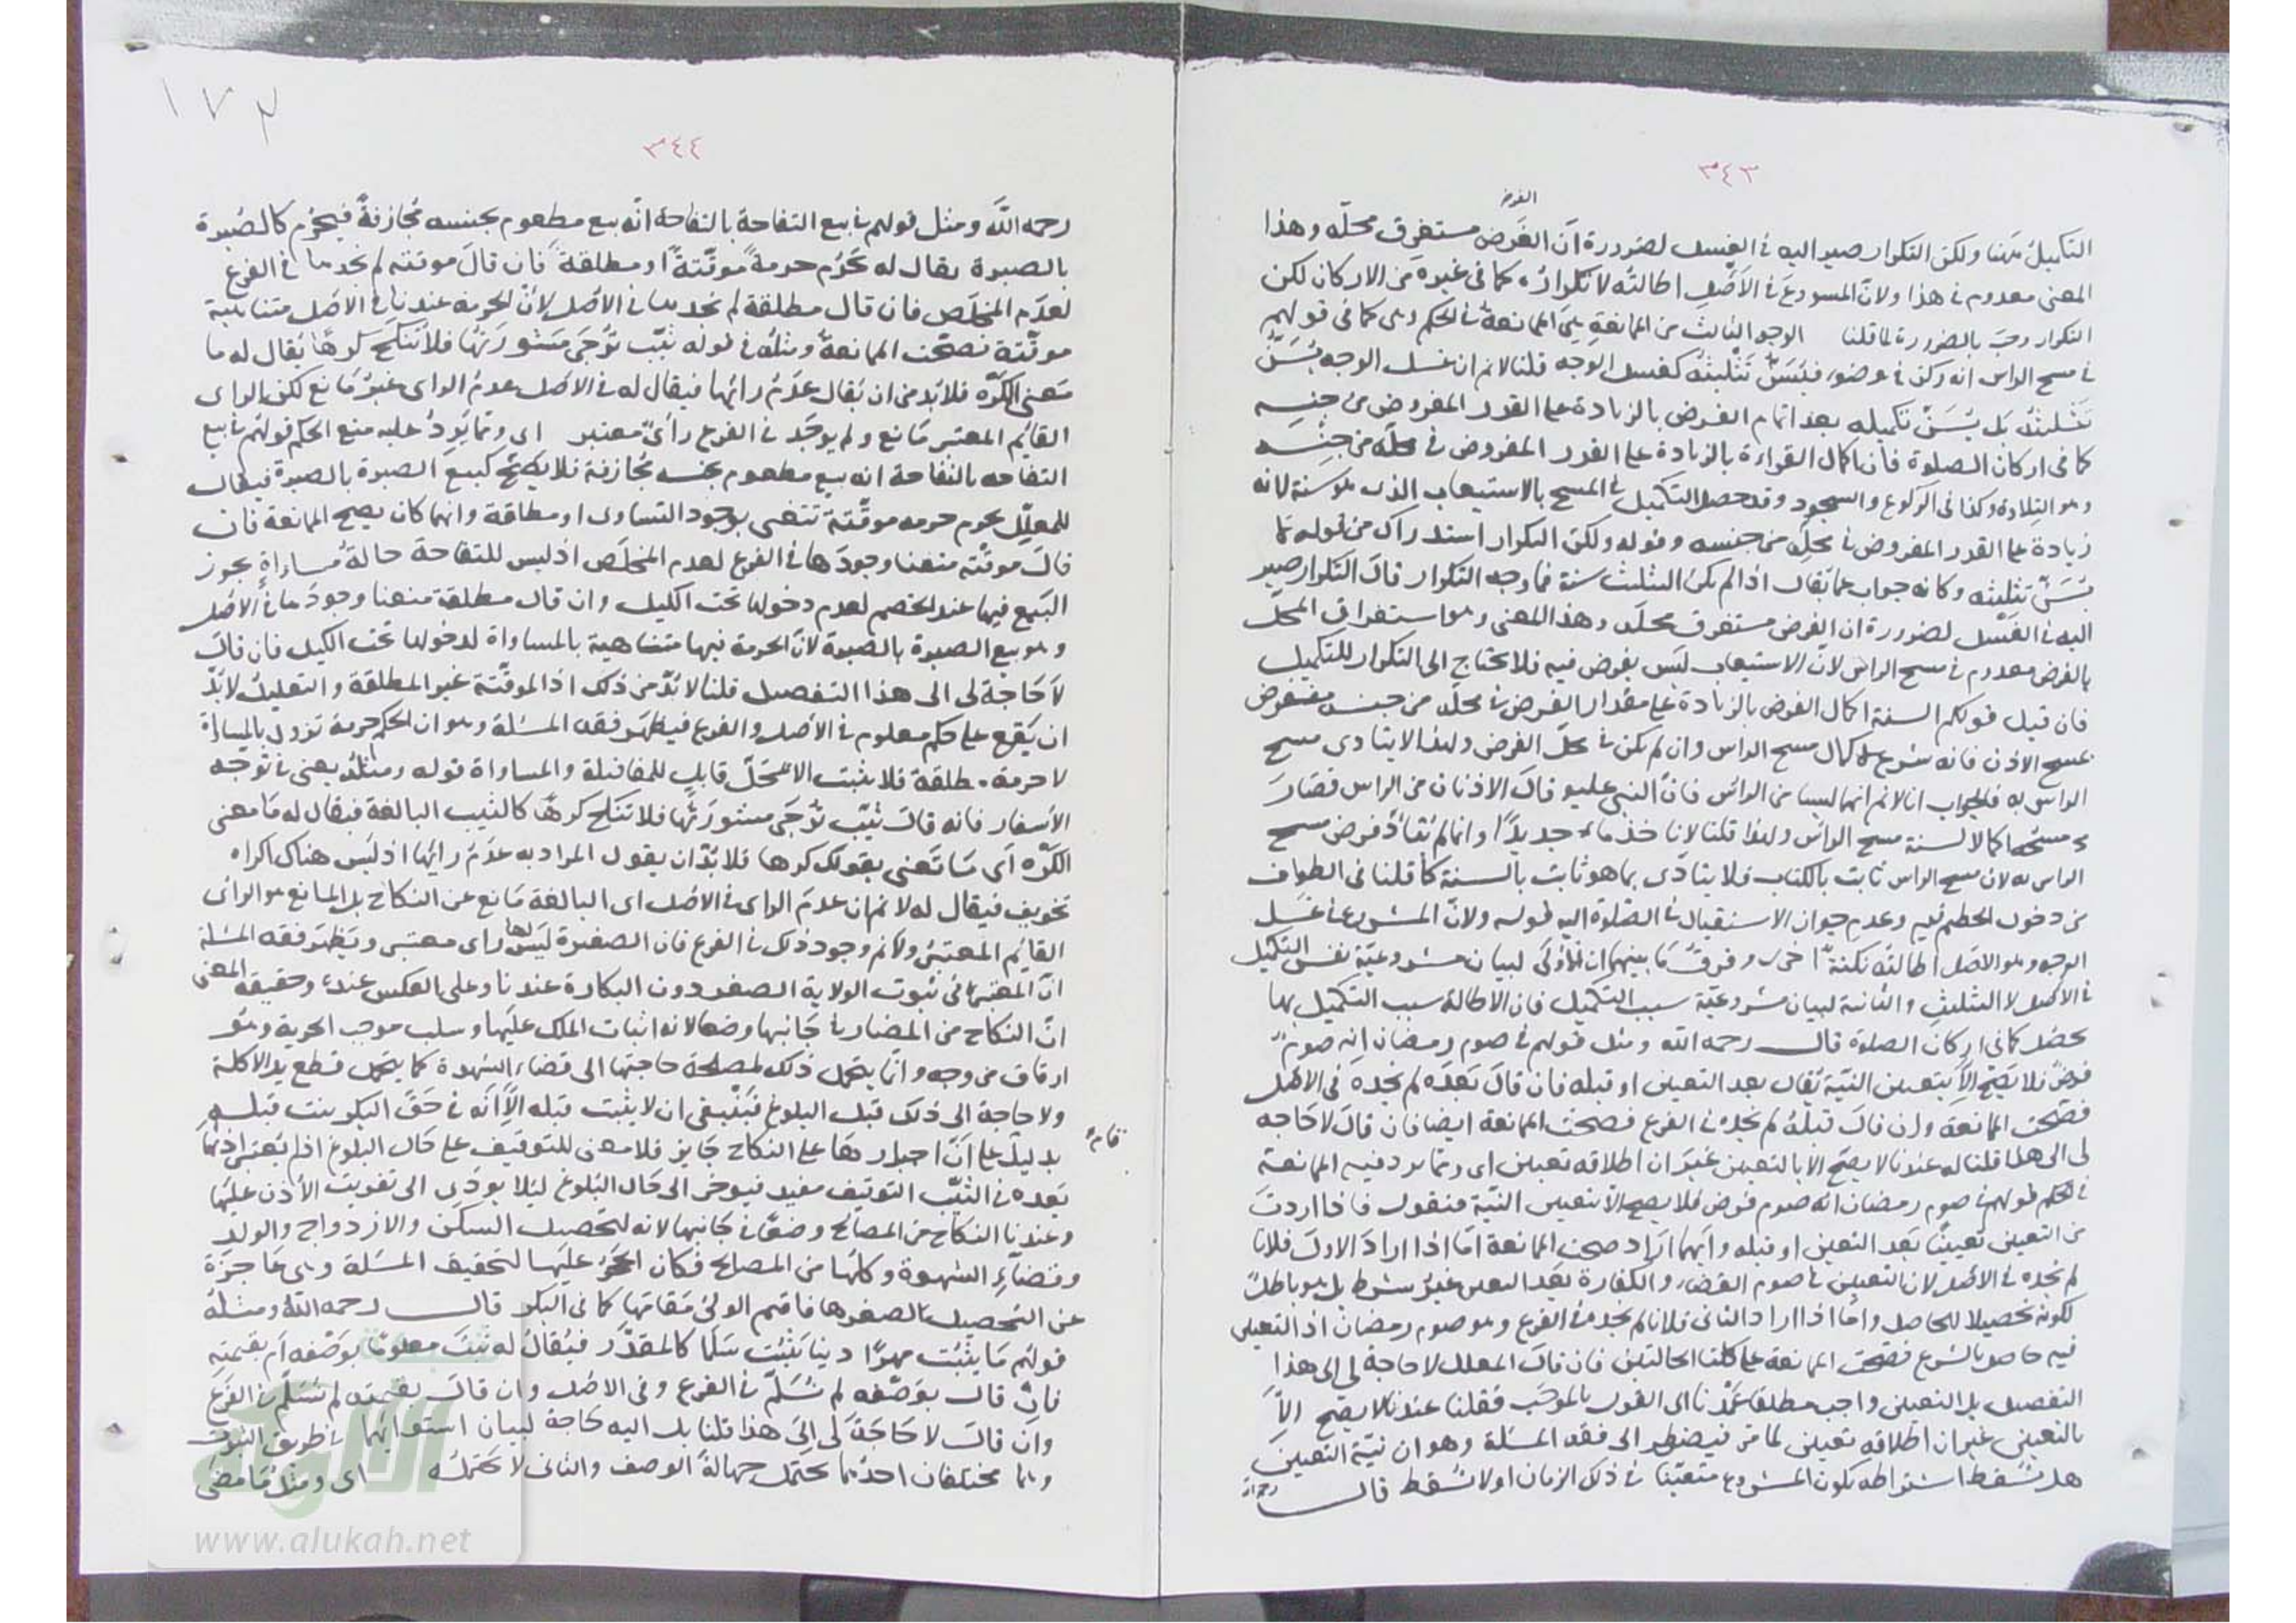 ٣٤٣
الفرض
التكميل ههنا ولكن التكرار صير اليه في الغسل لضرورة ان الفرض مستغرق محله وهذا
المعنى معدوم في هذا ولان المسنون في الاصل اطالته لا تكراره كما في غيره من الاركان لكن
التكرار وجب بالضرورة لما قلنا الوجه الثالث من الممانعة هي الممانعة في الحكم وهي كما في قولهم
في مسح الراس انه ركن في وضوء فيسن تثليثه كغسل الوجه قلنا لا نم ان غسل الوجه يسن
تثليثه بل يسن تكميله بعد اتمام الفرض بالزيادة على القدر المفروض من جنسه
كما في اركان الصلوة فان اكمال القراءة بالزيادة على القدر المفروض في محله من جنسه
وهو التلاوة وكذا في الركوع والسجود وقد حصل التكميل في المسح بالاستيعاب الذي هو سنة لانه
زيادة على القدر المفروض في محله من جنسه وقوله ولكن التكرار استدراك من قوله لا
يسن تثليثه وكانه جواب عما يقال اذا لم يكن التثليث سنة فما وجه التكرار قال التكرار صير
اليه في الغسل لضرورة ان الفرض مستغرق محله وهذا المعنى وهو استغراق المحل
بالفرض معدوم في مسح الراس لان الاستيعاب ليس بفرض فيه فلا يحتاج الى التكرار للتكميل
فان قيل قولكم السنة اكمال الفرض بالزيادة على مقدار الفرض في محله من جنسه منقوض
بمسح الاذن فانه شرع لاكمال مسح الراس وان لم يكن في محل الفرض ولهذا لا يتادى مسح
الراس به فالجواب انا لا نم انهما ليسا من الراس فان النبي عليه قال الاذنان من الراس فصار
مسحه اكمالا لسنة مسح الراس ولهذا قلنا لا ناخذ ماء جديدا وانما لم يتاد فرض مسح
الراس به لان مسح الراس ثابت بالكتاب فلا يتادى بما هو ثابت بالسنة كما قلنا في الطواف
من دخول الحطم فيه وعدم جواز الاستقبال في الصلوة اليه قوله ولان المشروع في غسل
الوجه وهو الاصل اطالته نكتة اخرى وفرق ما بينهما ان الاولى لبيان مشروعية نفس التكميل
في الاصل لا التثليث والثانية لبيان مشروعية سبب التكميل فان الاطالة سبب التكميل بها
يحصل كما في اركان الصلوة قال رحمه الله ومثل قولهم في صوم رمضان انه صوم
فرض فلا يصح الا بتعيين النية يقال بعد التعيين او قبله فان قال بعده لم نجده في الاصل
فصحت الممانعة وان قال قبله لم نجده في الفرع فصحت الممانعة ايضا فان قال لا حاجة
لي الى هذا قلنا له عندنا لا يصح الا بالتعيين غير ان اطلاقه تعيين اي ومما يرد فيه الممانعة
في الحكم قولهم في صوم رمضان انه صوم فرض فلا يصح الا بتعيين النية فنقول ماذا اردت
من التعيين تعيينا بعد التعين او قبله وايهما اراد صحت الممانعة اما اذا اراد الاول فلانا
لم نجده في الاصل لان التعيين في صوم القضاء والكفارة بعد التعين غير شرط بل هو باطل
لكونه تحصيلا للحاصل واما اذا اراد الثاني فلانا لم نجده في الفرع وهو صوم رمضان اذ التعين
فيه حاصل بالشرع فصحت الممانعة على كلتا الحالتين فان قال المعلل لا حاجة لي الى هذا
التفصيل بل التعيين واجب مطلقا عمدنا الى القول بالموجب فقلنا عندنا لا يصح الا
بالتعيين غير ان اطلاقه تعيين لما مر فيضطر الى فقه المسئلة وهو ان نية التعيين
هل تسقط اشتراطه لكون المشروع متعينا في ذلك الزمان او لا تسقط قال رحمه الله
١٧٣
٣٤٤
رحمه الله ومثل قولهم في بيع التفاحة بالتفاحة انه بيع مطعوم بجنسه مجازفة فيحرم كالصبرة
بالصبرة يقال له تحرم حرمة موقتة او مطلقة فان قال موقتة لم نجدها في الفرع
لعدم المخلص فان قال مطلقة لم نجدها في الاصل لان الحرمة عندنا في الاصل متناهية
موقتة فصحت الممانعة ومثله في قوله ثيب ترجى مشورتها فلا تنكح كرها يقال له ما
معنى الكره فلابد من ان يقال عدم رائها فيقال له في الاصل عدم الراى غير مانع لكن الراى
القايم المعتبر مانع ولم يوجد في الفرع رأي معتبر اى ومما يورد عليه منع الحكم قولهم في بيع
التفاحة بالتفاحة انه بيع مطعوم بجنسه مجازفة فلا يصح كبيع الصبرة بالصبرة فيقال
للمعلل يحرم حرمه موقتة تنتهى بوجود التساوى او مطلقة وايهما كان يصح الممانعة فان
قال موقته منعنا وجودها في الفرع لعدم المخلص اذ ليس للتفاحة حالة مساواة يجوز
البيع فيها عند الخصم لعدم دخولها تحت الكيل وان قال مطلقة منعنا وجودها في الاصل
وهو بيع الصبرة بالصبرة لان الحرمة فيها متناهية بالمساواة لدخولها تحت الكيل فان قال
لا حاجة لى الى هذا التفصيل قلنا لا بد من ذلك اذ الموقتة غير المطلقة والتعليل لا بد
ان يقع على حكم معلوم في الاصل والفرع فيظهر فقه المسئلة وهو ان الحكم حرمة تزول بالمساواة
لا حرمة مطلقة فلا يثبت الا في محل قابل للمفاضلة والمساواة قوله ومثله يعني في توجه
الاسفار فانه قال ثيب ترجى مشورتها فلا تنكح كرها كالثيب البالغة فيقال له ما معنى
الكره اى ما تعني بقولك كرها فلا بد ان يقول المراد به عدم رائها اذ ليس هناك اكراه
تخويف فيقال له لا نم ان عدم الراى في الاصل اى البالغة مانع عن النكاح بل المانع هو الراى
القايم المعتبر ولا نم وجود ذلك في الفرع فان الصغيرة ليس لها راى معتبر ويظهر فقه المسئلة
ان المعتبر في ثبوت الولاية الصغر دون البكارة عندنا وعلى العكس عنده وحقيقة المعنى
ان النكاح من المضار في جانبها وضعا لانه اثبات الملك عليها وسلب موجب الحرية وهو
ارقاق من وجه وانما يتحمل ذلك لمصلحة حاجتها الى قضاء الشهوة كما يتحمل قطع يد الاكلة
ولا حاجة الى ذلك قبل البلوغ فينبغي ان لا يثبت قبله الا انه في حق البكر ثبت قبله
بدليل على ان اجبارها على النكاح جايز فلا معنى للتوقيف على حال البلوغ اذ لم يعتبر اذنها
بعده في الثيب التوقيف مفيد فيوخر الى حال البلوغ ليلا يودى الى تفويت الاذن عليها
وعندنا النكاح من المصالح وضعا في جانبها لانه لتحصيل السكن والازدواج والولد
وقضاء الشهوة وكلها من المصالح فكان الحجر عليها لتحقيق المسئلة وهي عاجزة
عن التحصيل لصغرها فاقيم الولي مقامها كما في البكر قال رحمه الله ومثله
قولهم ما يثبت مهرا دينا يثبت سلما كالمقدر فيقال له ثبت معلوما بوصفه ام بقيمته
فان قال بوصفه لم نسلم في الفرع وفي الاصل وان قال بقيمته لم نسلم في الفرع
وان قال لا حاجة لى الى هذا قلنا بل اليه حاجة لبيان استوائهما في طريق الثبوت
وهما مختلفان احدهما يحتمل جهالة الوصف والثاني لا يحتمله اى ومثل ما مضى
www.alukah.net